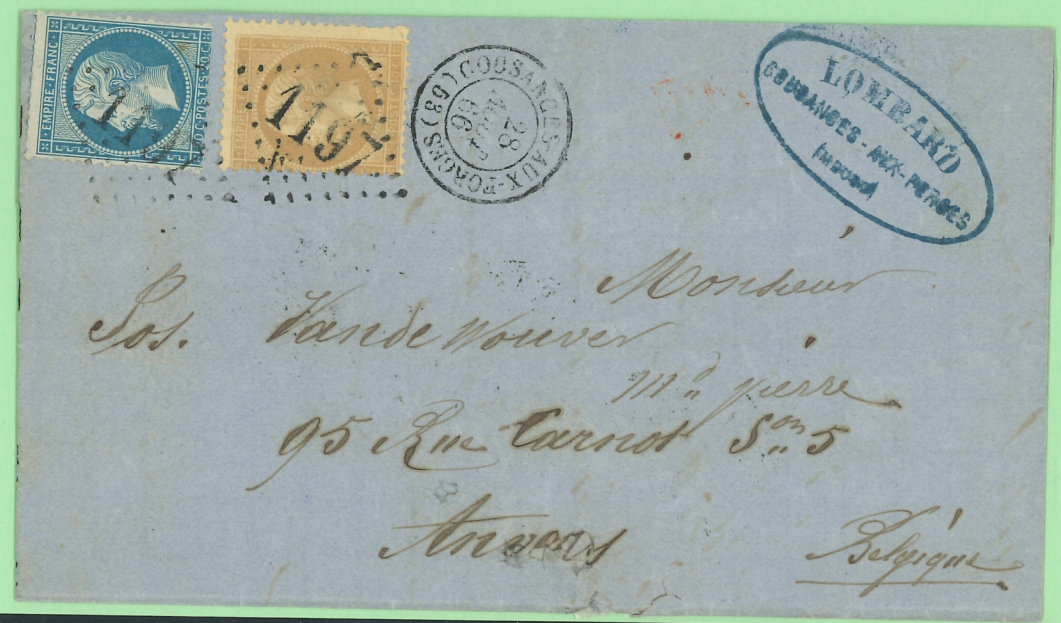 EMPIRE FRANC
20 C POSTES 20 C
1197
COUSANCES-AUX-FORGES (53)
28
66
LOMBARD
COUSANCES-AUX-FORGES
(MEUSE)
Monsieur
Jos. Van de Wouver
Md pierre
95 Rue Carnot Son 5
Anvers
Belgique